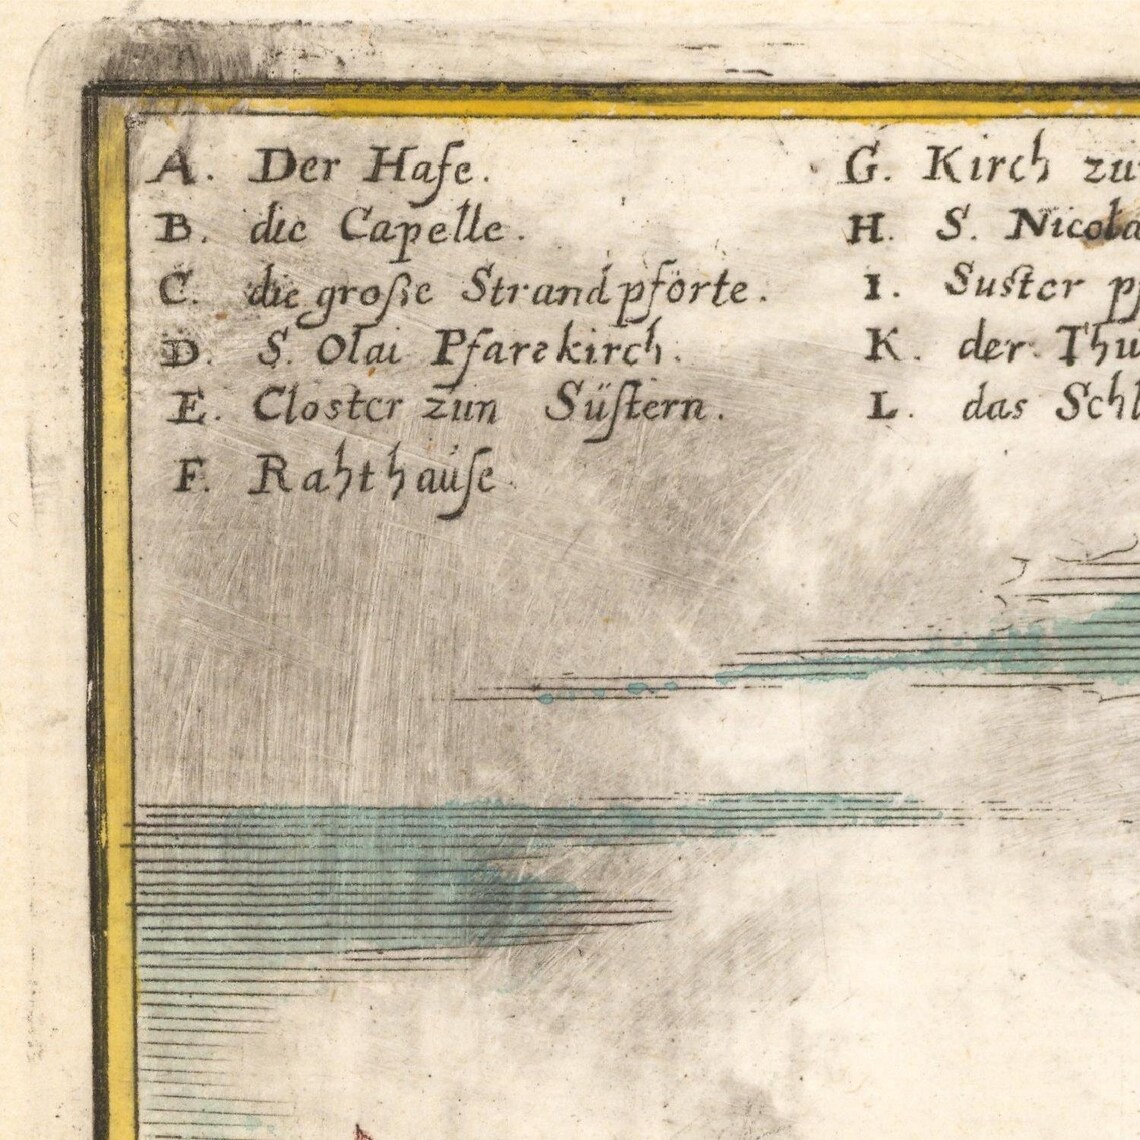 A. Der Hafe.
B. die Capelle.
C. die große Strandpforte.
D. S. Olai Pfarrkirch.
E. Closter zun Süstern.
F. Rahthause.
G. Kirch
H. S.
I. Suster
K. der
L. das